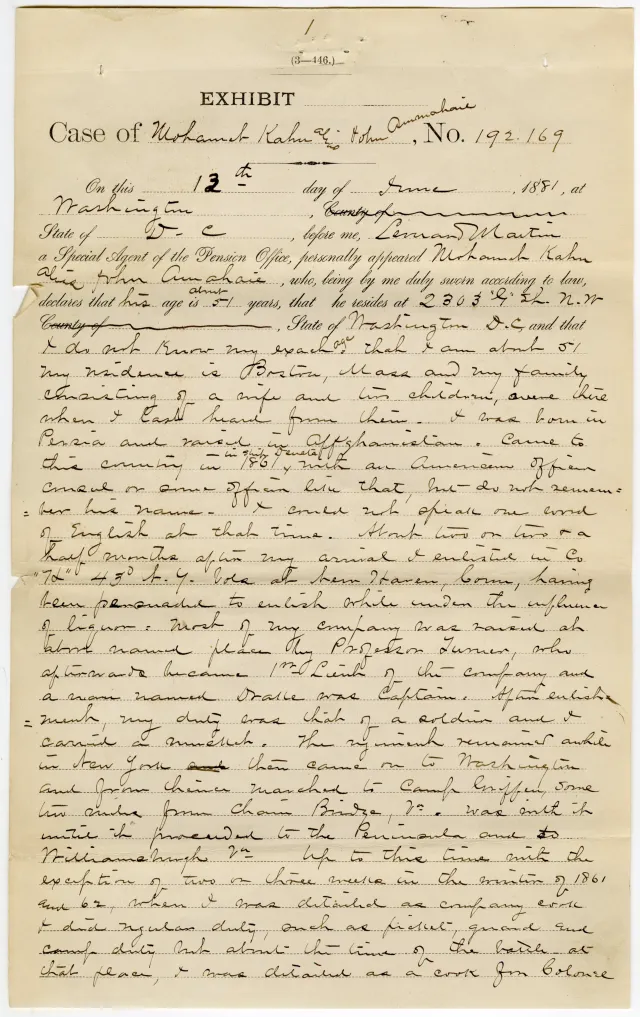 1
(3—446.)
EXHIBIT
Case of Mohamet Kahn alias John Ammahaie, No. 192.169
On this 13th day of June, 1881, at
Washington, County of
State of D. C before me, Leonard Martin
a Special Agent of the Pension Office, personally appeared Mohamet Kahn
alias John Amahaie, who, being by me duly sworn according to law,
declares that his age is about 51 years, that he resides at 2303 "G" St. N. W
County of, State of Washington D.C, and that
I do not Know my exact age that I am about 51
my residence is Boston, Mass and my family
consisting of a wife and two children, were there
when I last heard from them. I was born in
Persia and raised in Affghanistan. Came to
this country in 1861, with an American officer
consul or some officer like that, but do not remem=
=ber his name. I could not speak one word
of English at that time. About two or two & a
half months after my arrival I enlisted in Co
"H" 43d N. Y. Vols at New Haven, Conn, having
been persuaded to enlist while under the influence
of liquor. Most of my company was raised at
above named place by Professor Turner, who
afterwards became 1st Lieut of the company and
a man named Drake was Captain. After enlist=
=ment, my duty was that of a soldier and I
carried a musket. The regiment remained awhile
in New York and then came on to Washington
and from thence marched to Camp Griffen, some
two miles from Chain Bridge, Va. was with it
until it proceeded to the Peninsula and to
Williamsburgh Va Up to this time with the
exception of two or three weeks in the winter of 1861
and 62, when I was detailed as company cook
I did regular duty, such as picket, guard and
camp duty but about the time of the battle at
that place, I was detailed as a cook for Colonel